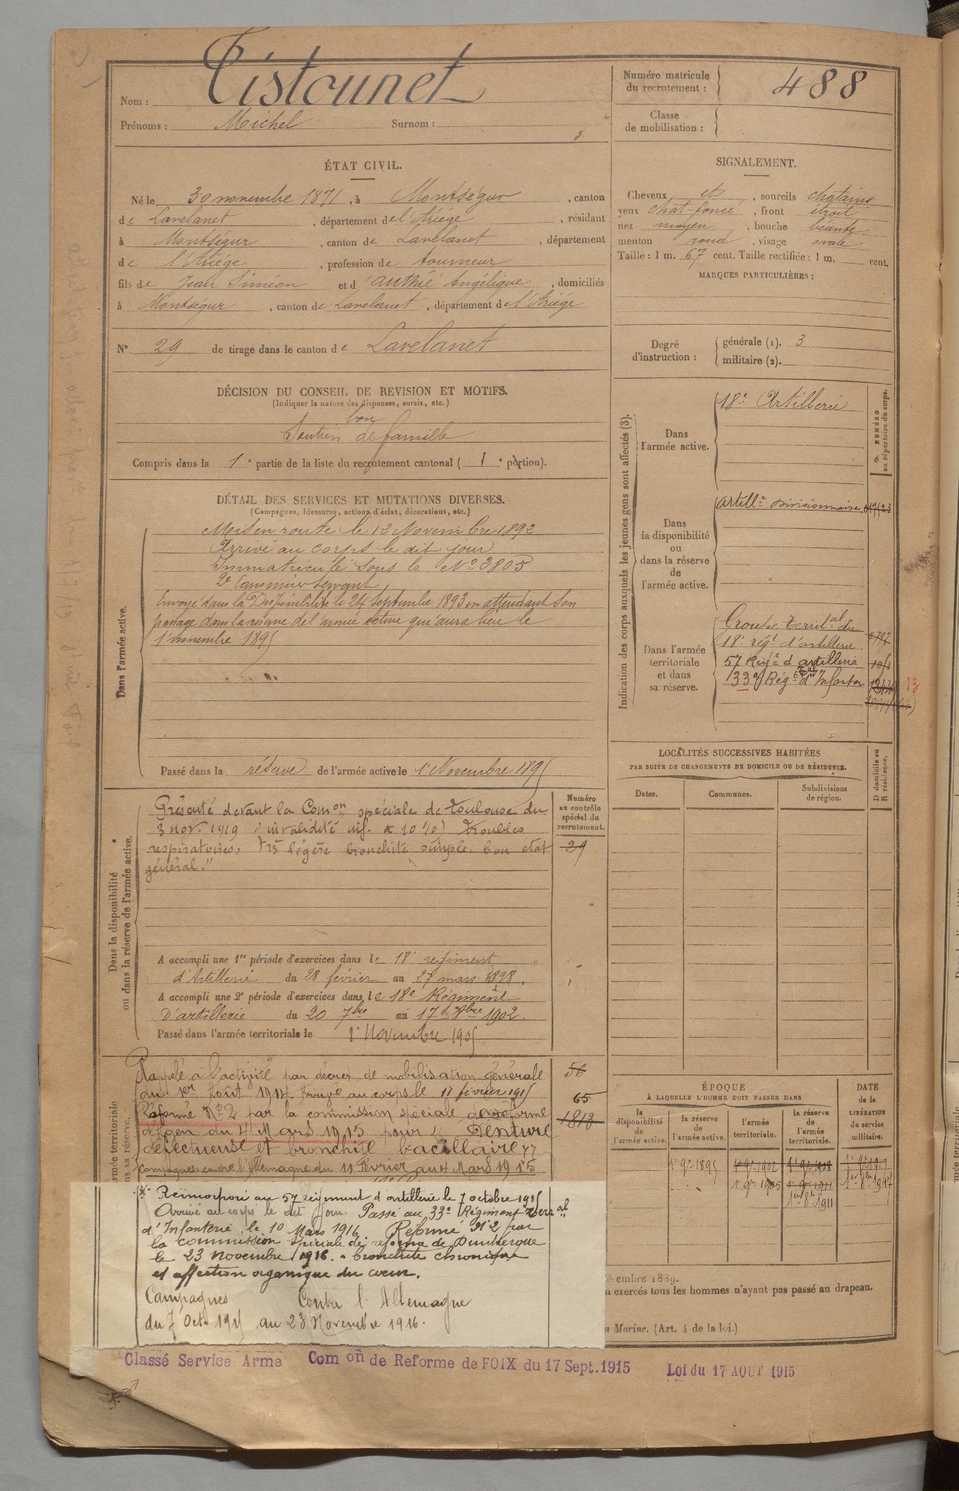 Nom : Tistounet
Prénoms : Michel Surnom :
Numéro matricule du recrutement : 488
Classe de mobilisation :
ÉTAT CIVIL.
Né le 30 novembre 1871, à Montségur, canton
de Lavelanet, département de l'Ariège, résidant
à Montségur, canton de Lavelanet, département
de l'Ariège, profession de tourneur
fils de Jean Siméon et d'Authié Angélique, domiciliés
à Montségur, canton de Lavelanet, département de l'Ariège
N° 29 de tirage dans le canton de Lavelanet
SIGNALEMENT.
Cheveux et, sourcils chatains
yeux chat-foncé, front étroit
nez moyen, bouche béante
menton rond, visage ovale
Taille : 1 m. 67 cent. Taille rectifiée : 1 m. cent.
MARQUES PARTICULIÈRES :
Degré d'instruction : générale (1). 3
militaire (2).
DÉCISION DU CONSEIL DE REVISION ET MOTIFS.
(Indiquer la nature des dispenses, sursis, etc.)
bon
Soutien de famille
Compris dans la 1e partie de la liste du recrutement cantonal ( 1e portion).
DÉTAIL DES SERVICES ET MUTATIONS DIVERSES.
(Campagnes, blessures, actions d'éclat, décorations, etc.)
Dans l'armée active.
Mis en route le 12 Novembre 1892
Arrivé au corps le dit jour
Immatriculé sous le N° 2805
2e Canonnier servant
Envoyé dans la Disponibilité le 24 Septembre 1893 en attendant son
passage dans la réserve de l'armée active qui aura lieu le
1er novembre 1895
Passé dans la réserve de l'armée active le 1er Novembre 1895
Dans la disponibilité ou dans la réserve de l'armée active.
Numéro au contrôle spécial du recrutement.
29
Présenté devant la Comon spéciale de Toulouse du
3 nov. 1919 "invalidité inf. à 10 %) Troubles
respiratoires, très légère bronchite simple. bon état
général."
A accompli une 1re période d'exercices dans le 18e régiment
d'Artillerie du 28 février au 27 mars 1898.
A accompli une 2e période d'exercices dans le 18e Régiment
d'artillerie du 20 7bre au 17 8bre 1902.
Passé dans l'armée territoriale le 1er Novembre 1905
armée territoriale
sa réserve.
Rappelé à l'activité par décret de mobilisation générale
du 1er Août 1914 arrivé au corps le 11 février 1915
Réformé N° 2 par la commission spéciale de réforme
d'Agen du 4 Mars 1915 pour "Denture
défectueuse et bronchite bacillaire"
Campagnes contre l'Allemagne du 11 Février au 4 Mars 1915
56
65
1812
Réincorporé au 57 régiment d'artillerie le 7 octobre 1915
Arrivé au corps le dit jour. Passé au 133e Régiment Territal
d'Infanterie le 10 Mars 1916 Réformé N° 2 par
la commission spéciale de réforme de Dunkerque
le 23 Novembre 1916. "bronchite chronique
et affection organique du coeur.
Campagnes Contre l'Allemagne
du 7 Octe 1915 au 23 Novembre 1916.
Indication des corps auxquels les jeunes gens sont affectés (3).
NUMÉRO au répertoire du corps.
Dans l'armée active.
18e Artillerie
Dans la disponibilité ou dans la réserve de l'armée active.
Artille Divisionnaire
Dans l'armée territoriale et dans sa réserve.
Groupe territal du
18e régt d'artillerie
57 Régt d'artillerie
133e Régt Ter d'Infanterie
13
LOCALITÉS SUCCESSIVES HABITÉES
PAR SUITE DE CHANGEMENTS DE DOMICILE OU DE RÉSIDENCE.
Dates. Communes. Subdivisions de région. D domicile ou R résidence.
ÉPOQUE
À LAQUELLE L'HOMME DOIT PASSER DANS
DATE de la LIBÉRATION du service militaire.
la disponibilité de l'armée active. la réserve de l'armée active. l'armée territoriale. la réserve de l'armée territoriale.
1er 9bre 1895
embre 1889.
u exercés tous les hommes n'ayant pas passé au drapeau.
Marine. (Art. 4 de la loi.)
Classé Service Armé Comon de Reforme de FOIX du 17 Sept. 1915 Loi du 17 AOUT 1915